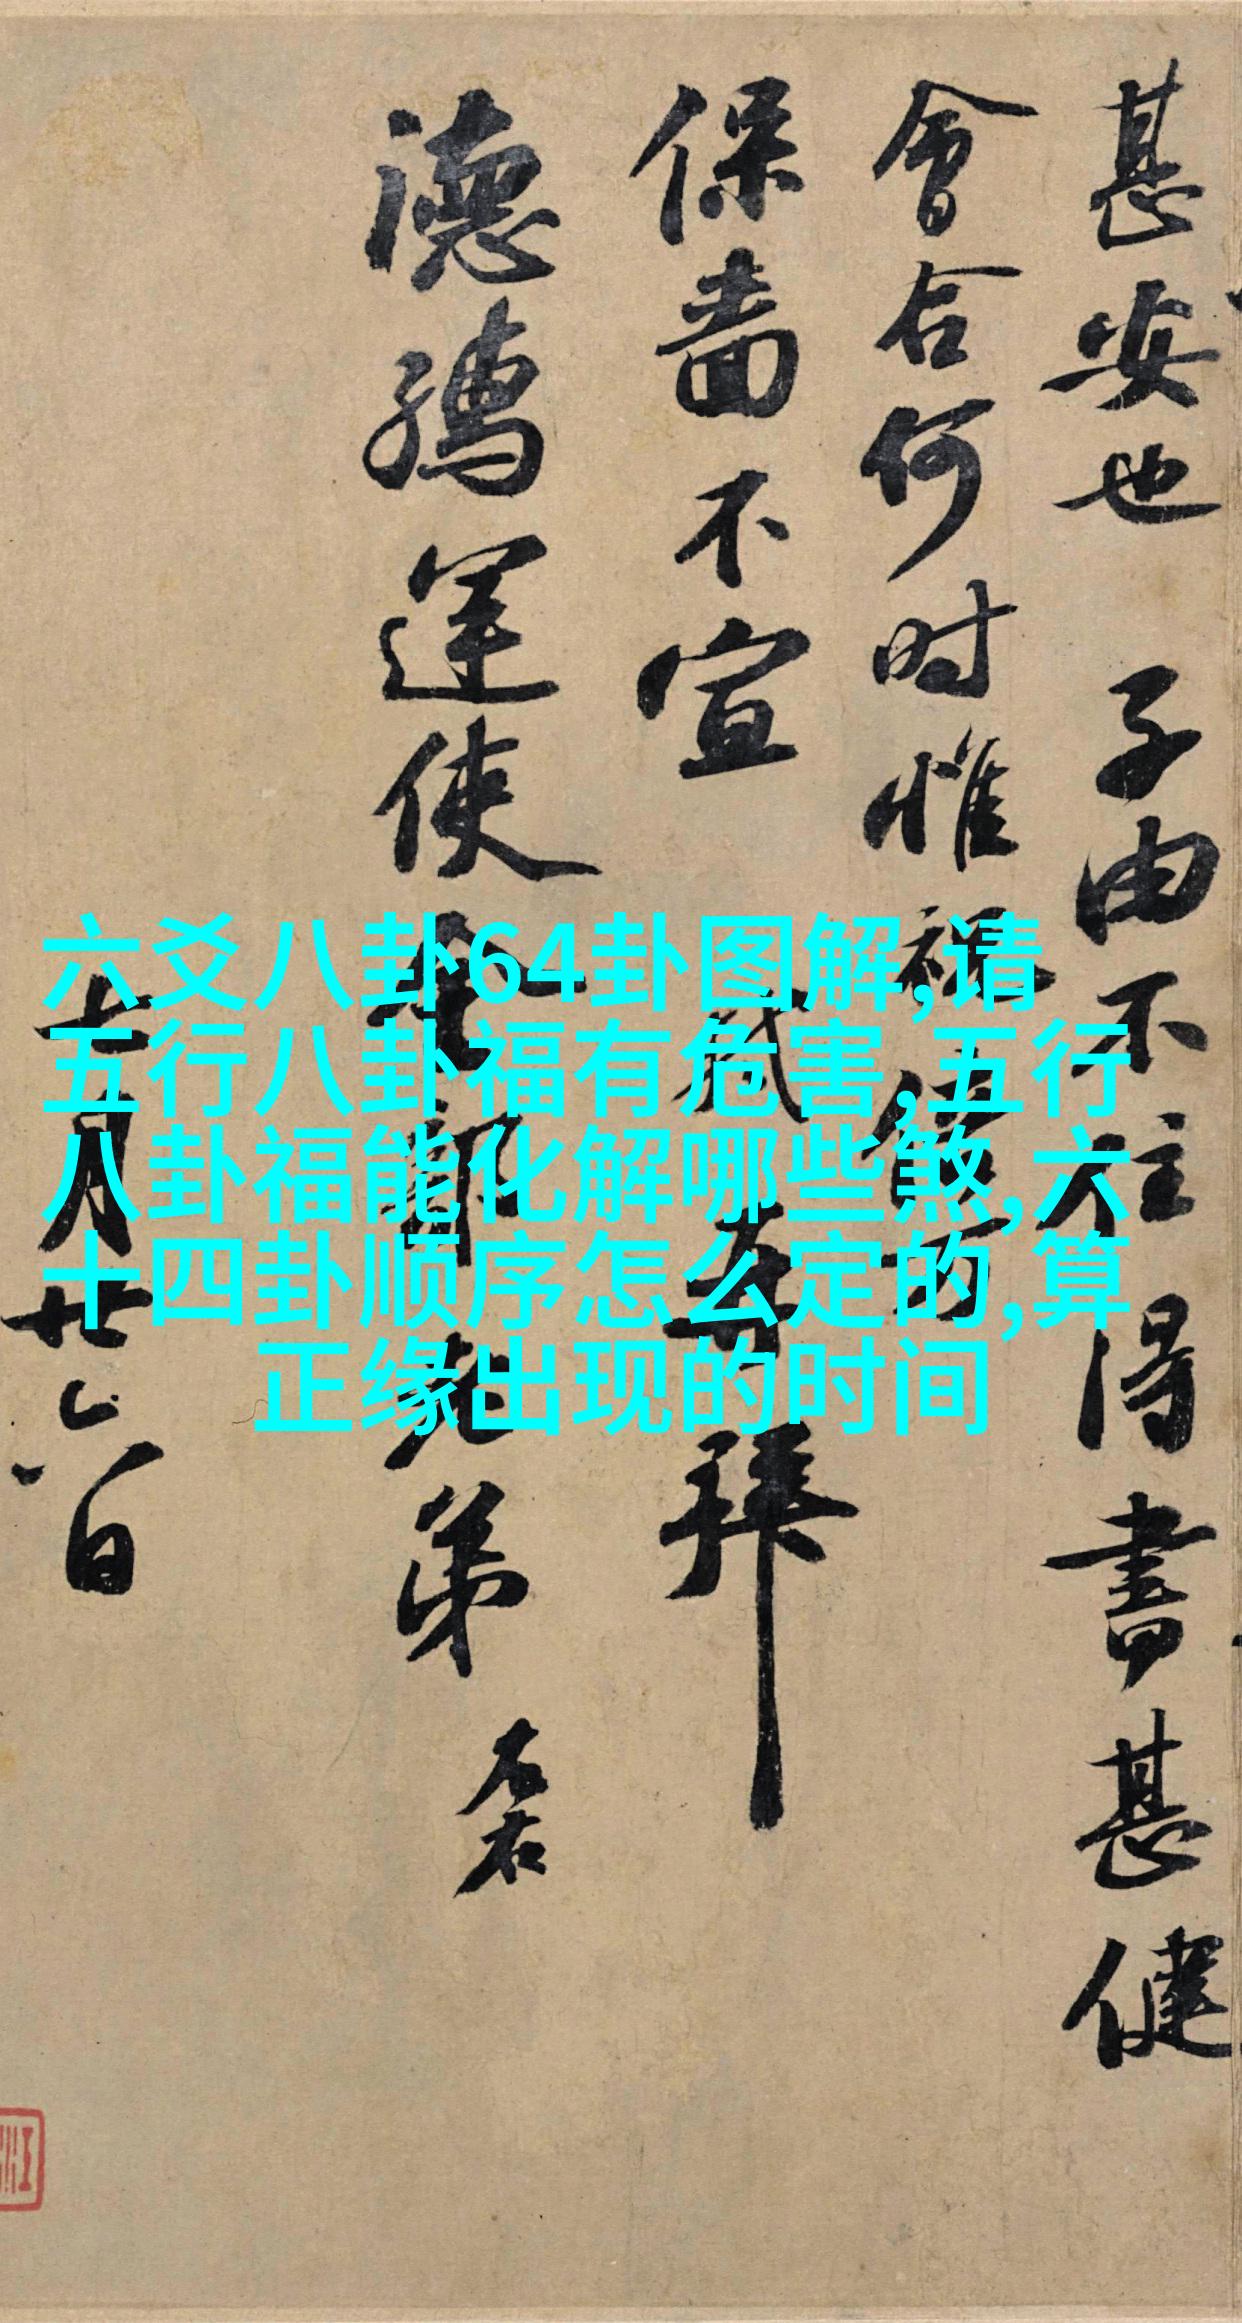 甚安也 子由不住得書甚健
會合何時惟祝倍万
保嗇不宣 軾再拜
德孺運使金部老弟 左右
七月廿六日
六爻八卦64卦图解,请
五行八卦福有危害,五行
八卦福能化解哪些煞,六
十四卦顺序怎么定的,算
正缘出现的时间